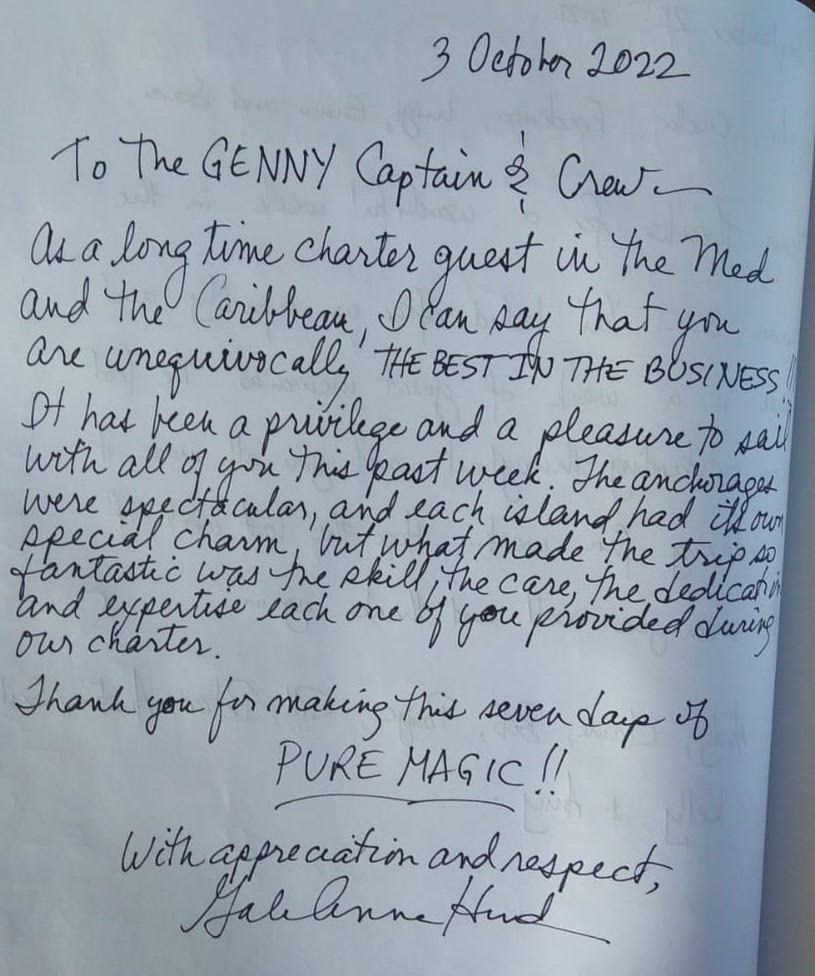 3 October 2022
To The GENNY Captain & Crew—
As a long time charter guest in the Med
and the Caribbean, I can say that you
are unequivocally THE BEST IN THE BUSINESS!!
It has been a privilege and a pleasure to sail
with all of you this past week. The anchorages
were spectacular, and each island had its own
special charm, but what made the trip so
fantastic was the skill, the care, the dedication
and expertise each one of you provided during
our charter.
Thank you for making this seven days of
PURE MAGIC!!
With appreciation and respect,
Gale Anne Hurd